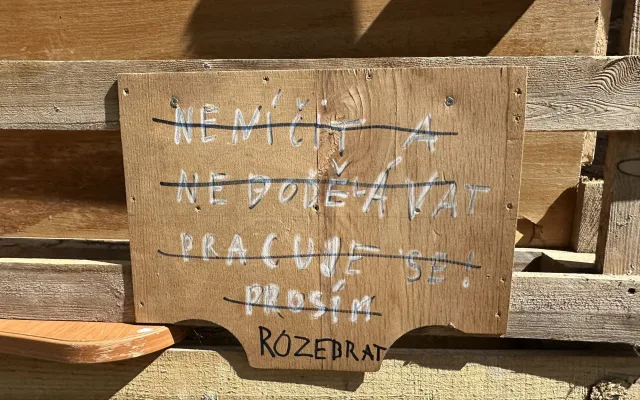 NENÍČIT A
NEDODĚLÁVAT
PRACUJE SE!
PROSÍM
ROZEBRAT